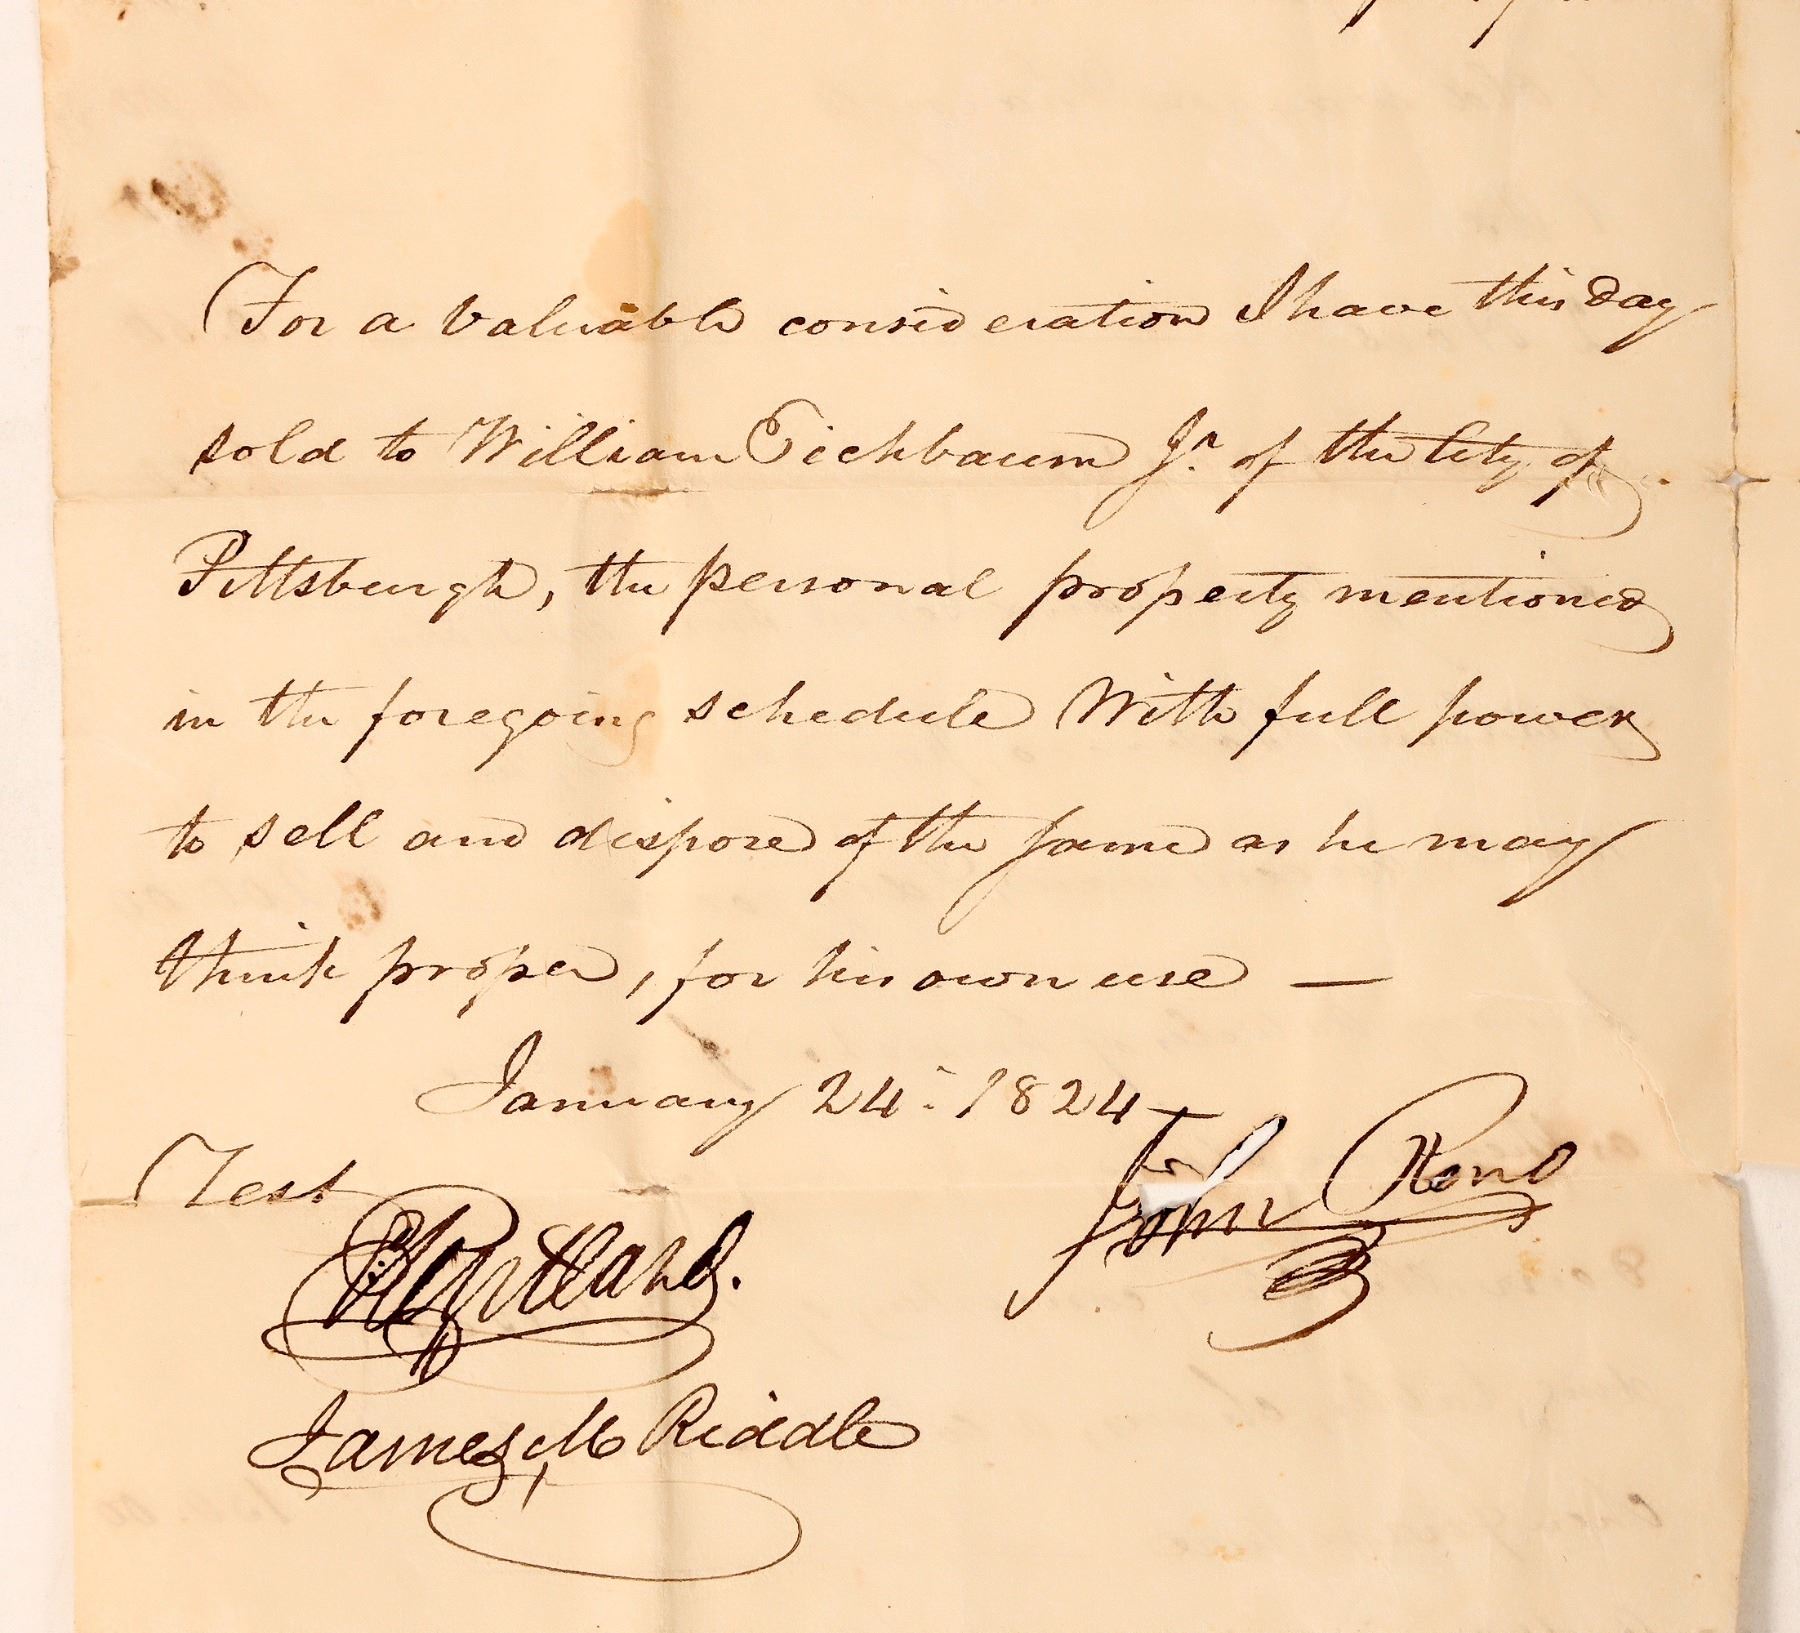 For a valuable consideration I have this day
sold to William Eichbaum Jr. of the City of
Pittsburgh, the personal property mentioned
in the foregoing schedule With full power
to sell and dispose of the same as he may
think proper, for his own use —
January 24. 1824
Test
John Reno
James M Riddle